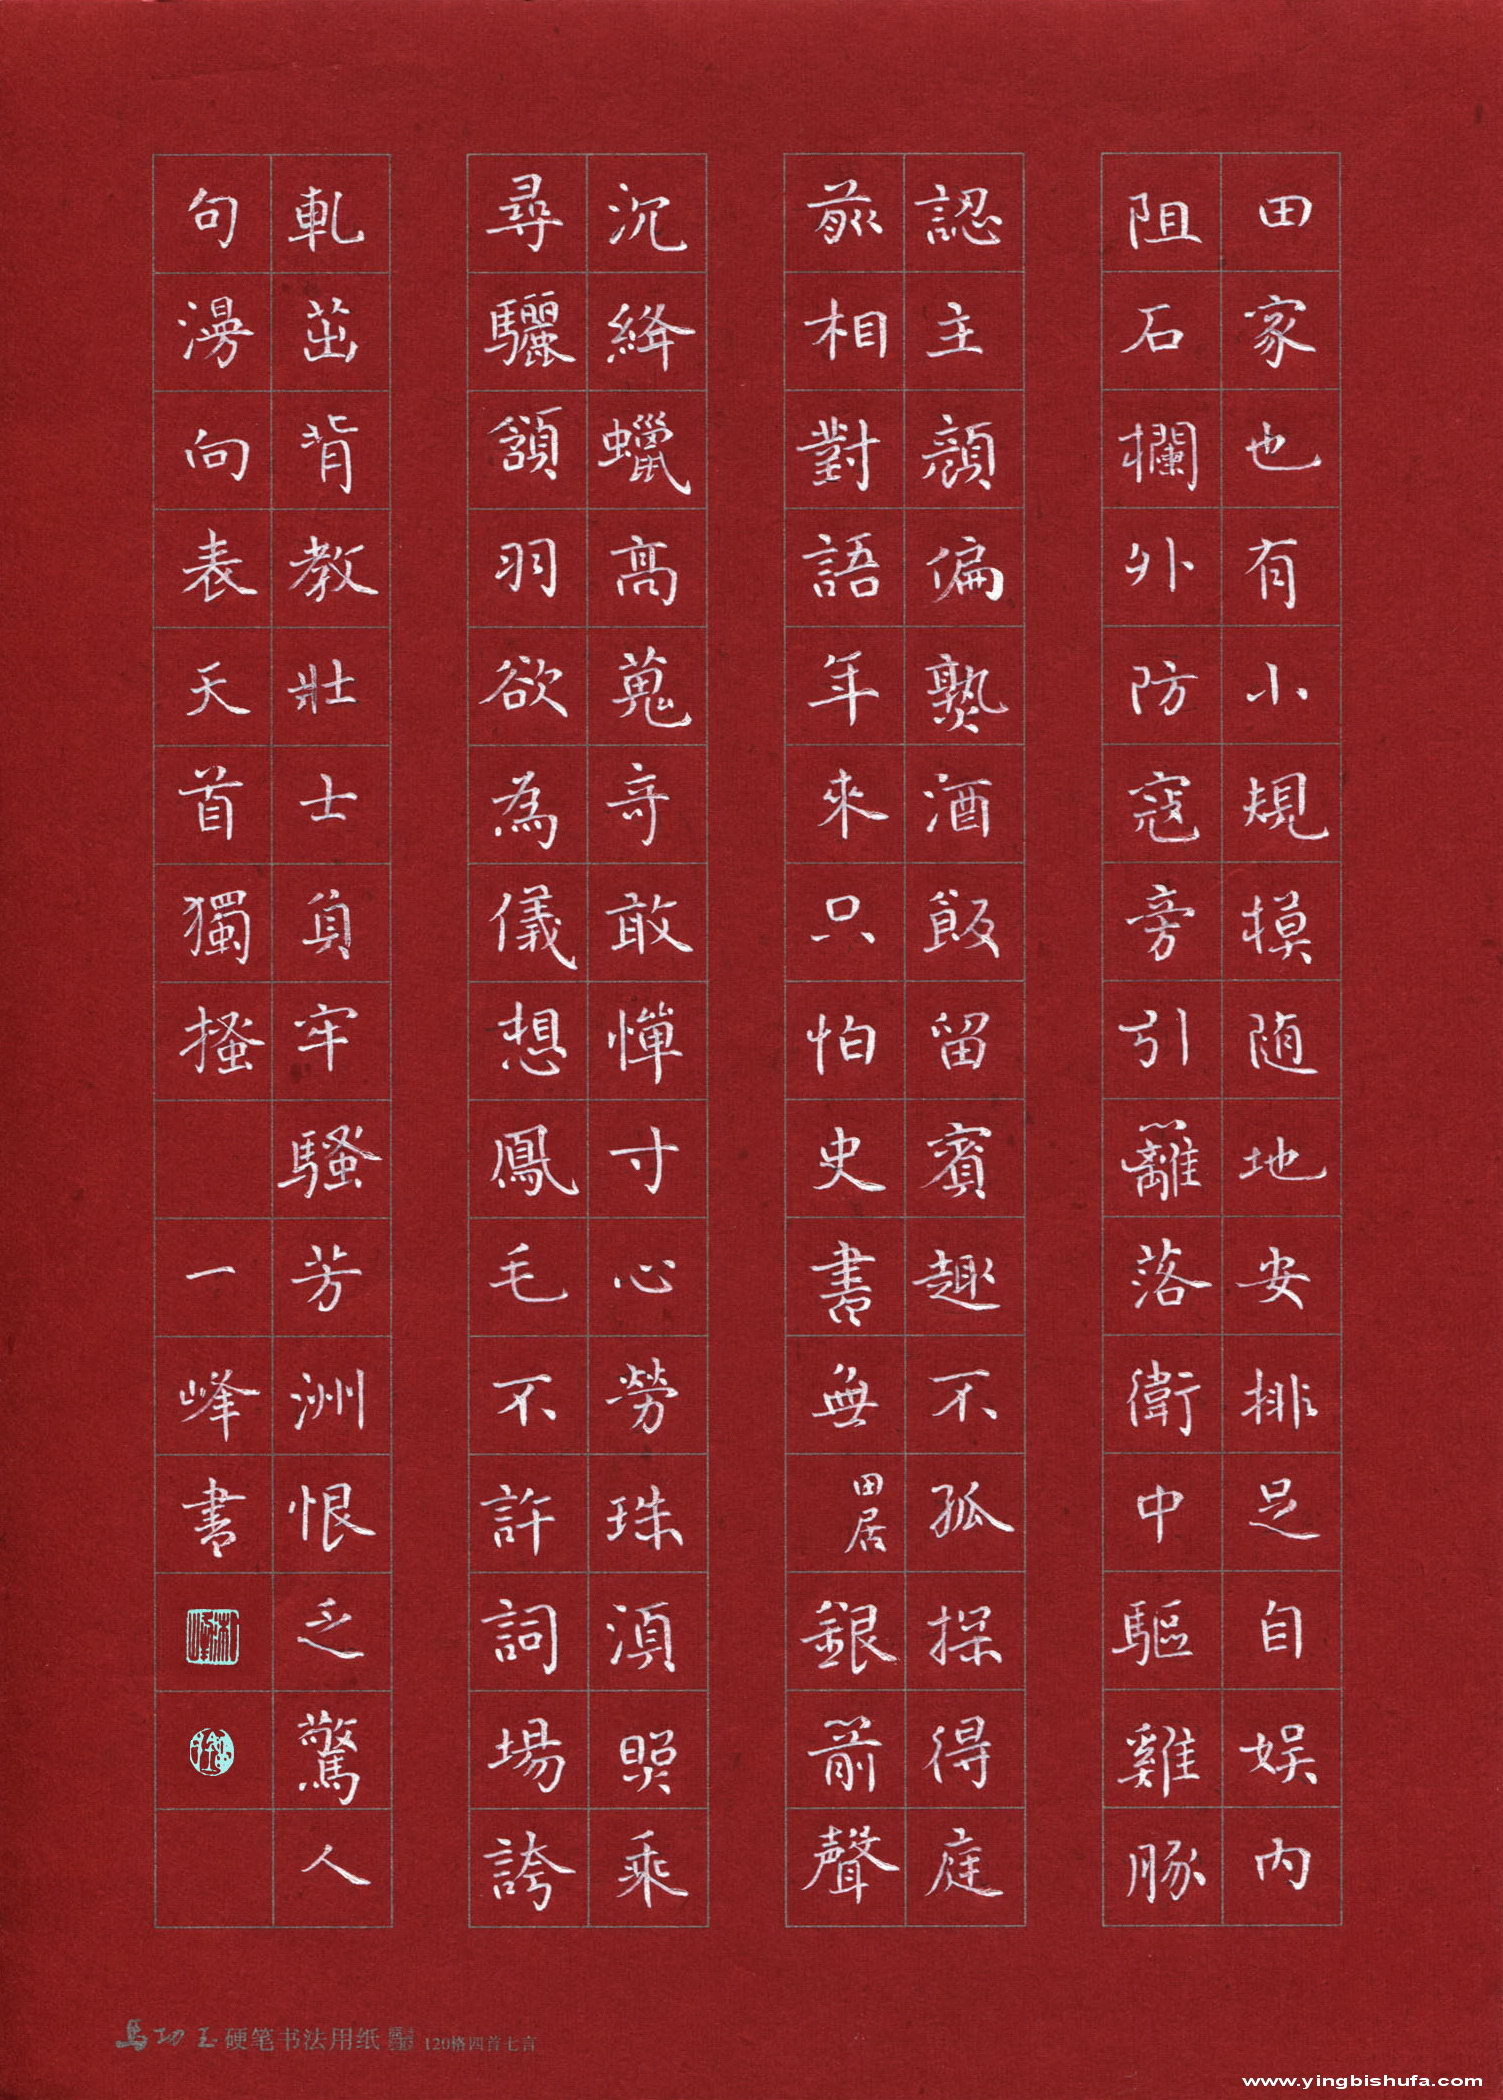 田家也有小規模随地安排足自娱内
阻石欄外防寇旁引籬落衛中驅雞豚
認主顔偏熟酒飯留賓趣不孤探得庭
前相對語年來只怕史書無 田居 銀箭聲
沉絳蠟高蒐奇敢憚寸心勞珠須照乘
尋驪頷羽欲為儀想鳳毛不許詞場誇
軋茁背教壯士負牢騷芳洲恨乏驚人
句漫向表天首獨搔 一峰書
硬笔书法用纸 120格四首七言
www.yingbishufa.com